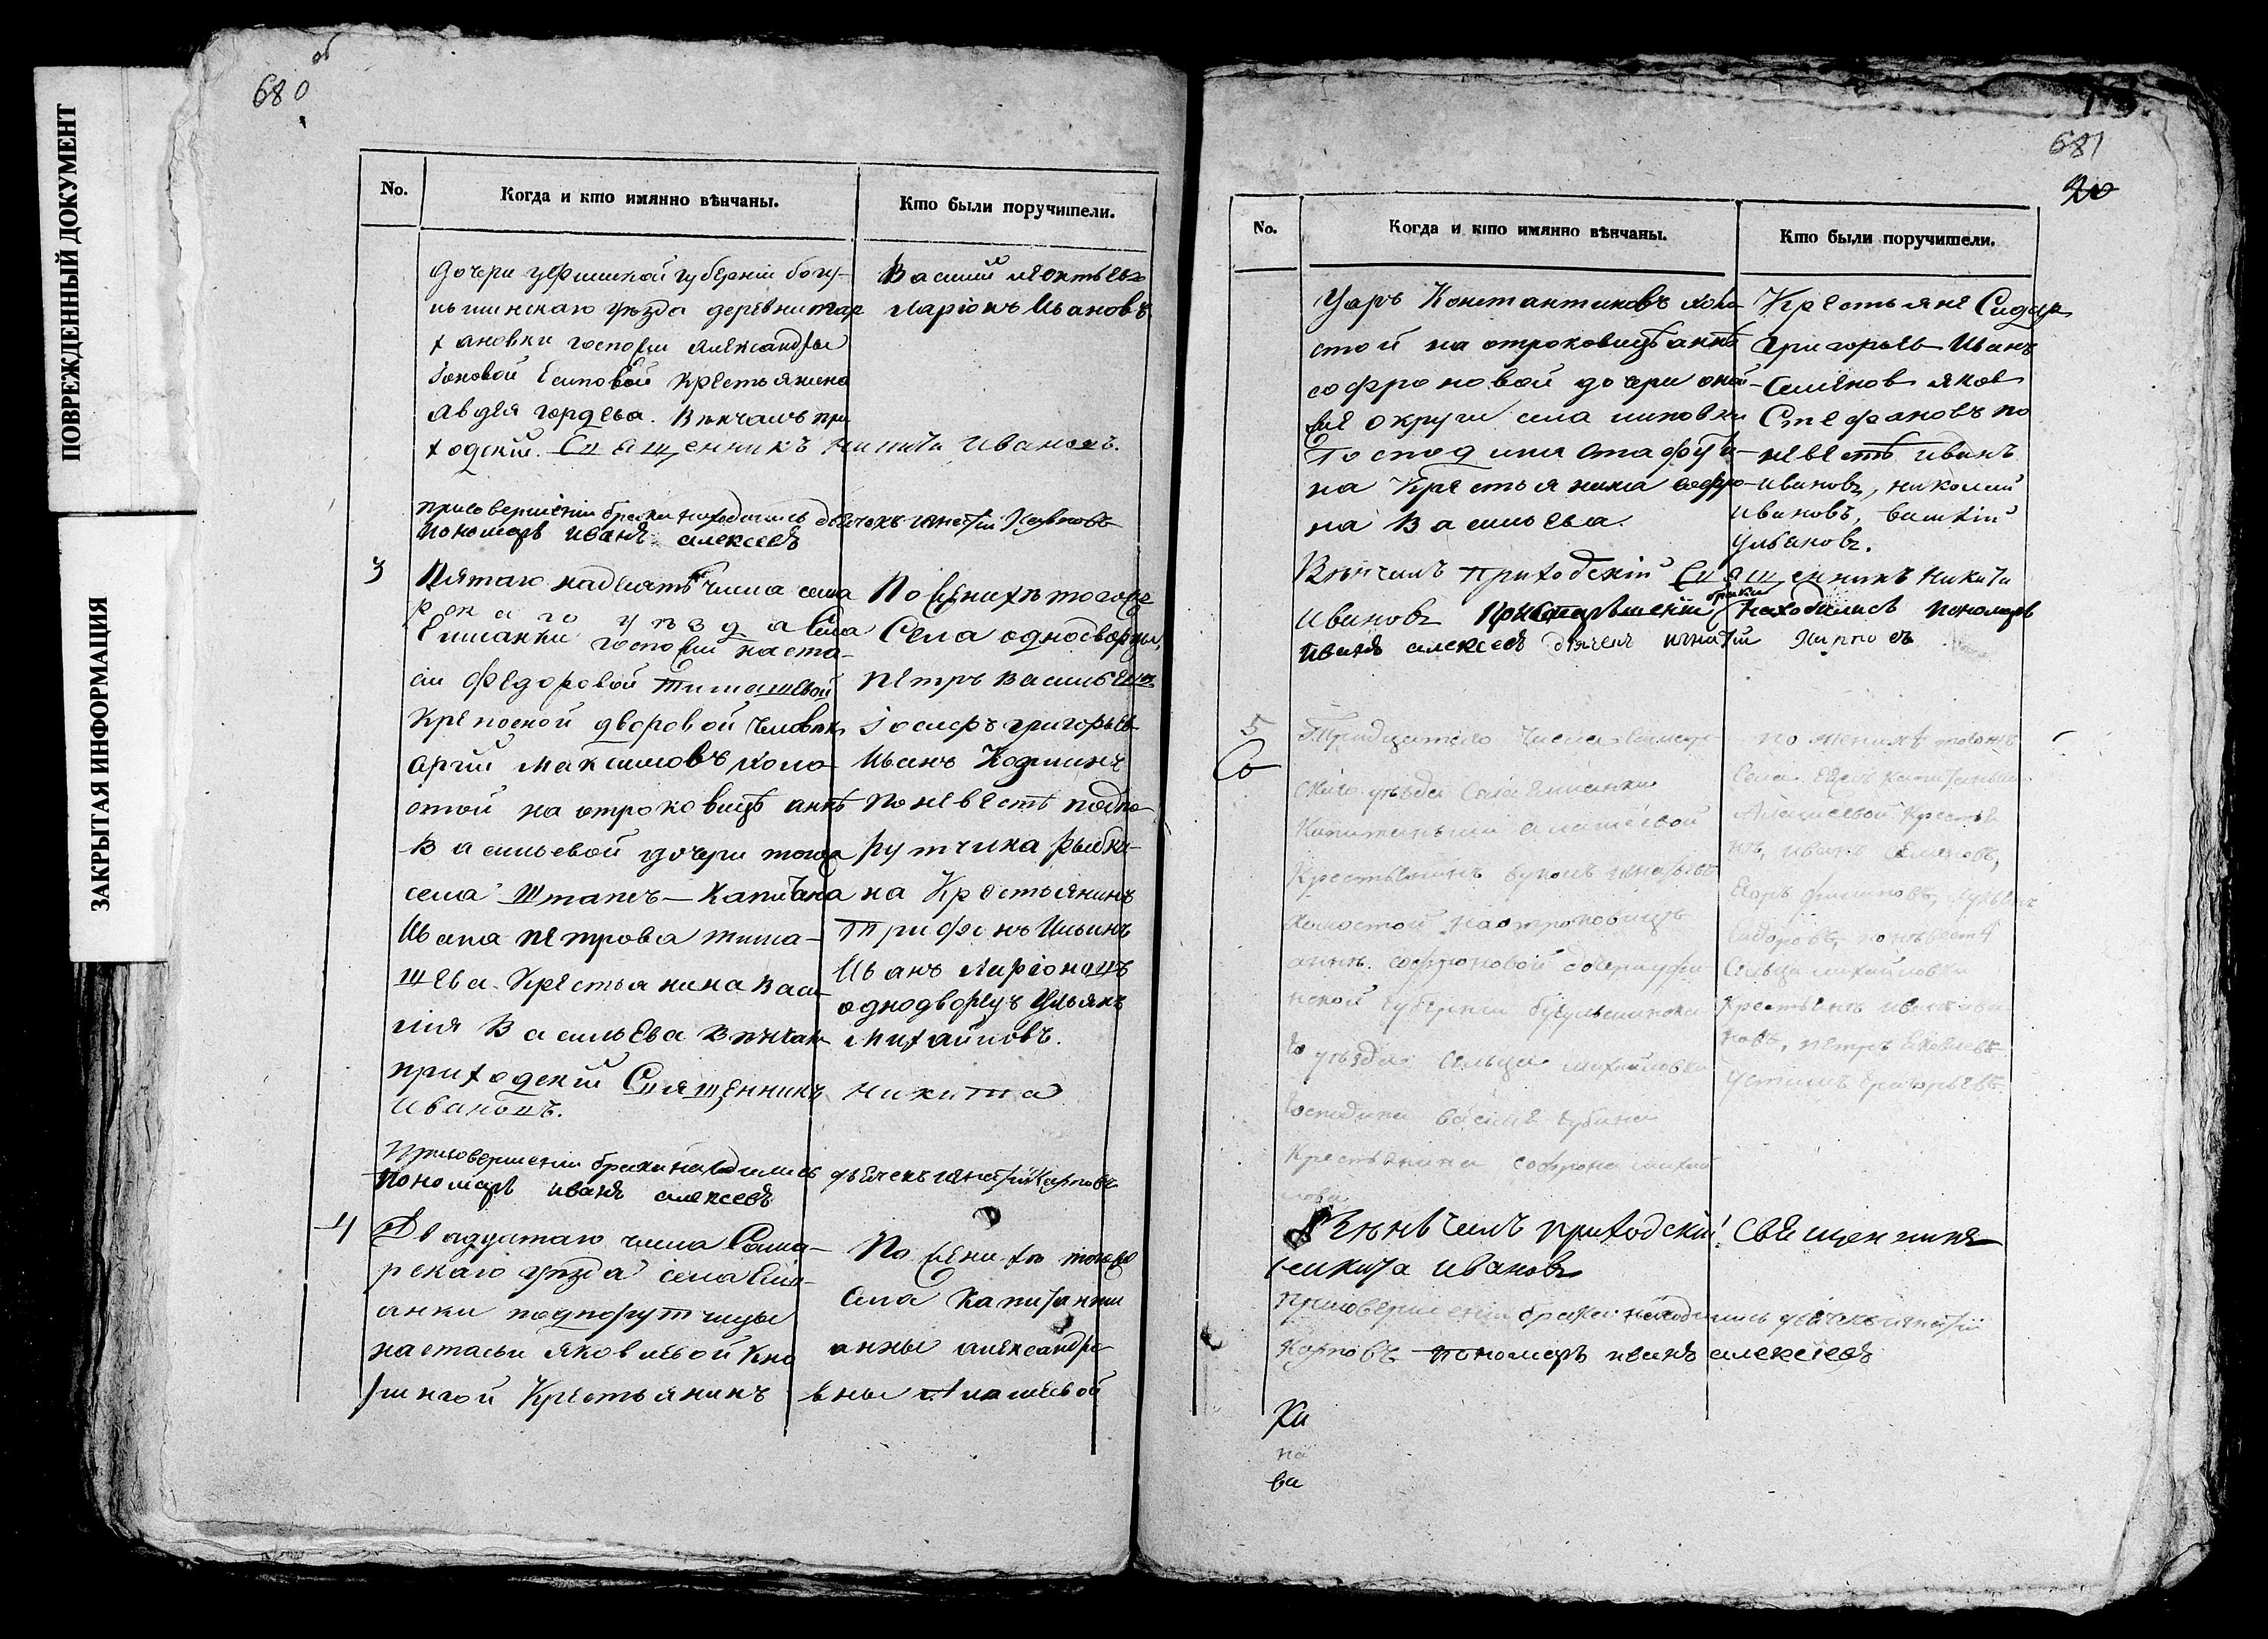 ПОВРЕЖДЕННЫЙ ДОКУМЕНТ
ЗАКРЫТАЯ ИНФОРМАЦИЯ
680 об
No.
Когда и кто имянно вѣнчаны.
Кто были поручители.
дочери уфимской губерніи богу-
льминскаго уѣзда деревни тар
хановки госпожи александры
Есиповой крестьянина
авдея гордѣева. Вѣнчалъ при
ходскій. Священникъ никита Ивановъ.
Василій леонтьевъ
Ларіонъ Ивановъ
присовершеніи брака находились дьячокъ игнатіи Карповъ
пономарь иванъ алексеевъ
3
Пятаго надесять числа сама
рскаго уѣзда села
Емшанки госпожи наста-
сіи федоровой тимашевой
крепосной дворовой человѣкъ
максимовъ холо-
стой на отроковицѣ аннѣ
Васильевой дочери тогоже
села Штапсъ-капитана
Ивана петрова тима-
шева. крестьянина Васи-
лія Васильева Вѣнчалъ
приходскій Священникъ никита
Ивановъ.
По женихѣ тогоже
Села однодворцы,
петръ васильевъ
Іосифъ григорьевъ
Иванъ Козминъ
по невестѣ подпо-
рутчика рыбки-
на Крестьянинъ
Трифонъ Ильинъ
Иванъ Ларіоновъ
однодворецъ Ульянъ
Михайловъ.
присовершеніи брака находились дьячекъ игнатіи Карповъ
пономарь иванъ алексеевъ
4
Двадцатаго числа Сама-
рскаго уѣзда села Емш-
анки подпорутчицы
настасьи яковлевой
крестьянинъ
По женихѣ тогоже
Села капитанши
анны александро-
вны Алашевой
681
20
No.
Когда и кто имянно вѣнчаны.
Кто были поручители.
Константиновъ холо
стой на отроковицѣ аннѣ
софроновой дочери оной
же округи села липовки
Господина
на Крестьянина софро-
на Васильева.
Крестьяне Сидоръ
Григорьевъ Иванъ
Семеновъ яковъ
Стефановъ по
невестѣ иванъ
ивановъ, николай
ивановъ, василій
ульяновъ.
Вѣнчалъ приходскій Священникъ никита
ивановъ При совершеніи брака находились пономарь
иванъ алексеевъ дьячекъ игнатіи Карповъ
5
Тридцатаго числа самар-
скаго уѣзда села Емшанки
Капитанши алашеевой
Крестьянинъ
холостой на отроковицѣ
аннѣ. софроновой дочери уфи
мской губерніи бугульминска
го уѣзда сельца михайловки
господина
Крестьянина софрона михай
лова
по женихѣ тогожъ
Села капитанши
Алашеевой Крестья
нѣ, иванъ семеновъ,
Егоръ филиповъ,
сидоровъ, по невестѣ
Сельца михайловки
крестьянѣ иванъ ива
новъ, петръ яковлевъ
устинъ григорьевъ
Вѣнчалъ приходскій священникъ
никита ивановъ
присовершеніи брака находились дьячекъ игнатіи
Карповъ пономарь иванъ алексеевъ
Ки
на
ва